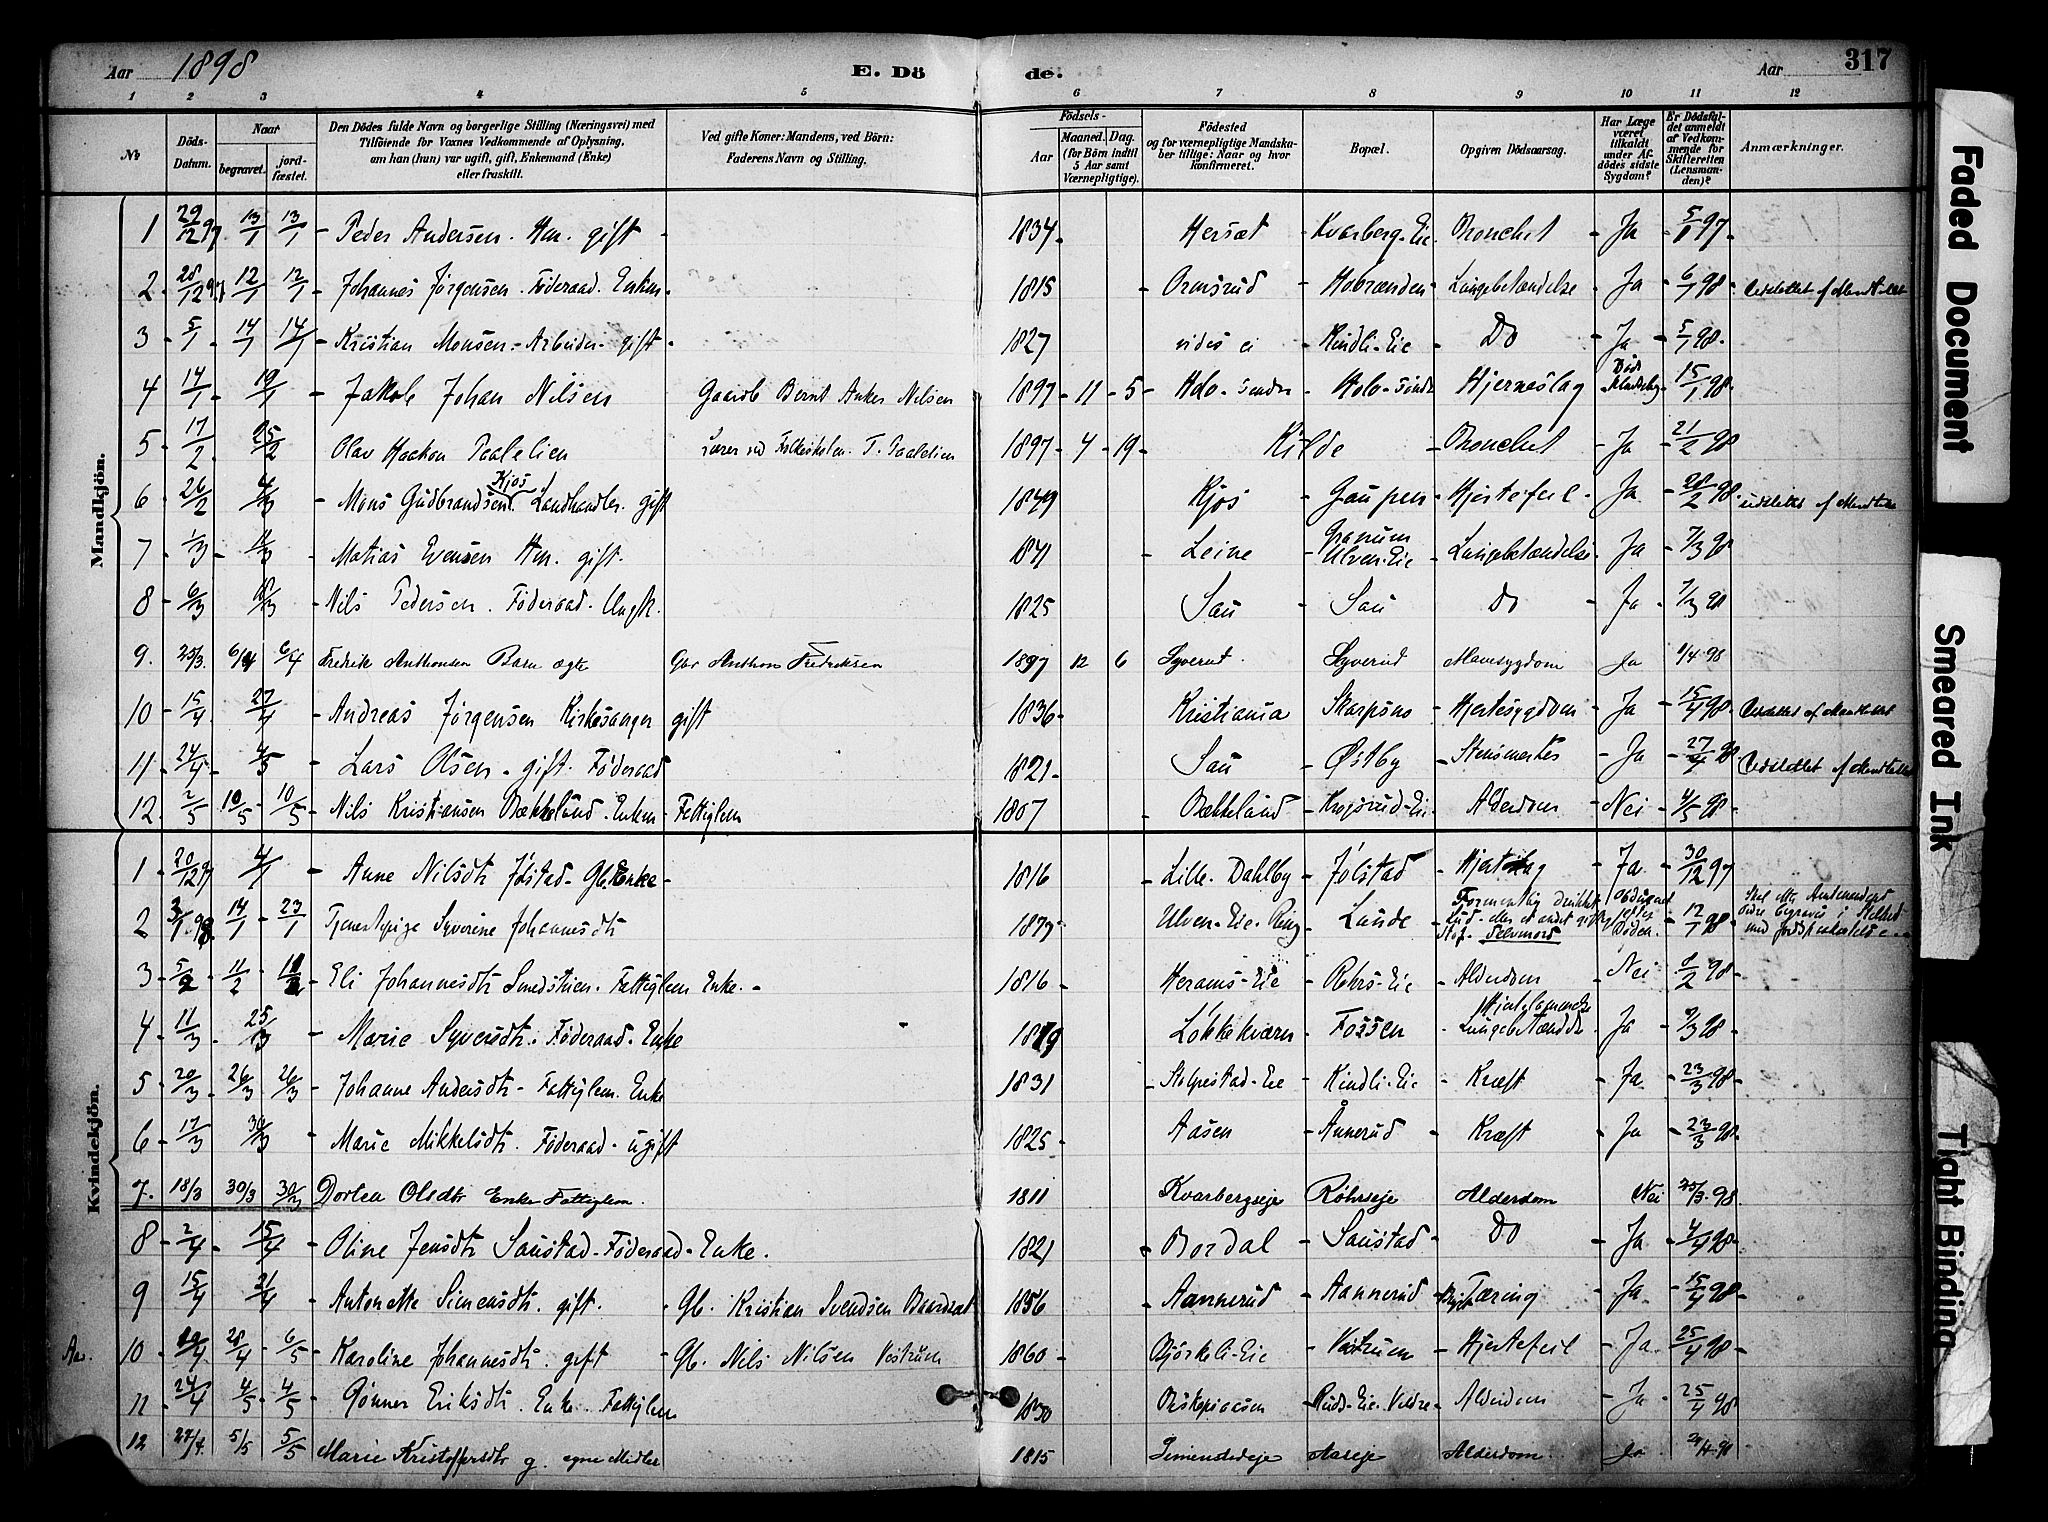 Aar 1898 E. Dö de. Aar 317
1 2 3 4 5 6 7 8 9 10 11 12
№ Döds-Datum. Naar begravet. jord-fæstet. Den Dödes fulde Navn og borgerlige Stilling (Næringsvei) med Tilföiende for Voxnes Vedkommende af Oplysning, om han (hun) var ugift, gift, Enkemand (Enke) eller fraskilt. Ved gifte Koner: Mandens, ved Börn: Faderens Navn og Stilling. Födsels- Aar Maaned. Dag. (for Börn indtil 5 Aar samt Værnepligtige). Födested og for værnepligtige Mandska-ber tillige: Naar og hvor konfirmeret. Bopæl. Opgiven Dödsaarsag. Har Læge været tilkaldt under Af-dödes sidste Sygdom? Er Dödsfal-det anmeldt af Vedkom-mende for Skifteretten (Lensman-den)? Anmærkninger.
Mandkjön.
1 29/12 97 13/1 13/1 Peder Andersen. Hm. gift 1834 Hersæt Kvarberg-Eie Bronchit Ja 5/1 97
2 28/12 97 12/1 12/1 Johannes Jørgensen. Føderaad. Enkem 1815 Ormsrud Lungebetændelse Ja 6/1 98 Udslettet af Mandtallet
3 5/1 14/1 14/1 Kristian Monsen. Arbeider. gift 1827 vides ei Kindli-Eie Do Ja 5/1 98
4 14/1 19/1 Jakob Johan Nilsen Gaardb Bernt Anker Nilsen 1897 11 5 Holo-søndre Holo-søndre Hjerneslag Død 15/1 98
5 17/2 25/2 Olav Haakon Paalelien Lærer ved Folkeskolen T. Paalelien 1897 4 19 Kilde Bronchit Ja 21/2 98
6 26/2 4/3 Mons Gudbrandsen Kjos Landhandler. gift 1849 Kjos Gaupen Hjertefeil Ja 28/2 98 udslettet af Mandtallet
7 1/3 11/3 Matias Evensen Hm. gift 1841 Leine Granum Ulven-Eie Lungebetændelse Ja 7/3 98
8 6/3 18/3 Nils Pedersen. Føderaad. Ungk. 1825 Sau Sau Do Ja 7/3 98
9. 25/3. 6/4 6/4 Fredrik Anthonsen Barn ægte Gbr Anthon Fredriksen 1897 12 6 Syverud Syverud Mavesygdom Ja 1/4 98
10 15/4 27/4 Andreas Jørgensen Kirkesanger gift 1836 Kristiania Skarpsno Hjertesygdom Ja 15/4 98 Udslettet af Mandtallet
11 24/4 4/5 Lars Olsen. gift. Føderaad 1821 Sau Østby Stensmerter Ja 27/4 98 Udslettet af Mandtallet
12. 2/5 10/5 10/5 Nils Kristiansen Bækkelund. Enkem Fattiglem 1807 Bækkelund Krogsrud-Eie Alderdom Nei 4/5 98
Kvindekjön.
1 20/12 97 4/1 Anne Nilsdtr Jølstad. Gb. Enke 1816 Lille-Dahlby Jølstad Hjerteslag Ja 30/12 97
2 3/1 98 14/1 23/1 Tjenestepige Syverine Johannesdtr 1879 Ulven-Eie. Ring Lunde Formentlig drukket Lud eller et andet giftig Stof. Selvmord Obduceret efter Døden. 12/1 98
3 5/2 11/2 11/2 Eli Johannesdtr Smedstuen. Fattiglem Enke. 1816 Herams-Eie Røhrs-Eie Alderdom Nei 8/2 98
4 11/3 25/3 Marie Syversdtr. Føderaad. Enke 1819 Løkkekværn Fossen Lungebetændelse Ja 9/3 98
5 20/3 26/3 26/3 Johanne Andersdtr. Fattiglem. Enke 1831 Stolpestad-Eie Kindli-Eie Kræft Ja 23/3 98
6 17/3 30/3 Marie Mikkelsdtr. Føderaad. ugift 1825 Aasen Ånnerud Kræft Ja 23/3 98
7. 18/3 30/3 30/3 Dorlea Olsdtr Enke Fattiglem 1811 Kvarbergseje Røhrseje Alderdom Nei 25/3 98
8 2/4 15/4 Oline Jensdtr Saustad. Føderaad. Enke. 1821 Bordal Saustad Do Ja 4/4 98
9 15/4 21/4 Antonette Simensdtr. gift. Gb. Kristian Svendsen Baardset 1856 Aannerud Aannerud Tæring Ja 15/4 98
10 19/4 28/4 6/5 Karoline Johannesdtr. gift Gb. Nils Nilsen Vestrum 1860 Bjørkeli-Eie Vestrum Hjertefeil Ja 25/4 98
11 24/4 4/5 4/5 Gønner Eriksdtr. Enke. Fattiglem 1830 Bispeaasen Ruds-Eie Veldre Alderdom Ja 25/4 98
12 27/4. 5/5 5/5 Marie Kristoffersdtr g. egne Midler 1815 Simenstadeje Aaseje Alderdom Ja 98
Faded Document
Smeared Ink
Tight Binding